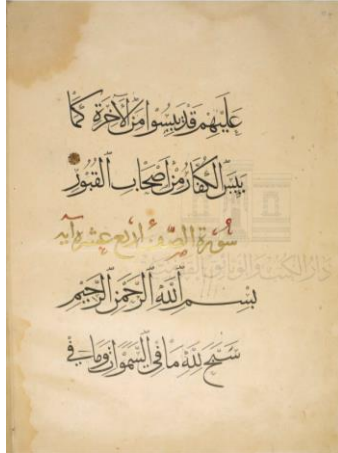 عَلَيْهِمْ قَدْ يَئِسُوا مِنَ الْآخِرَةِ كَمَا
يَئِسَ الْكُفَّارُ مِنْ أَصْحَابِ الْقُبُورِ
سورة الصف اربع عشرة آية
بِسْمِ اللَّهِ الرَّحْمَنِ الرَّحِيمِ
سَبَّحَ لِلَّهِ مَا فِي السَّمَوَاتِ وَمَا فِي
دار الكتب والوثائق القومية